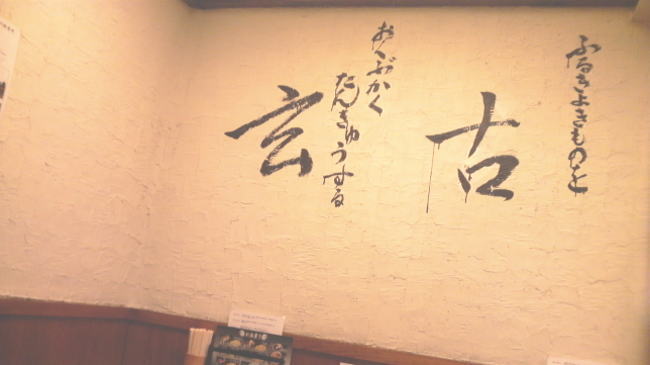 ふるきよきものを
古
おくぶかく
たんきゅうする
玄